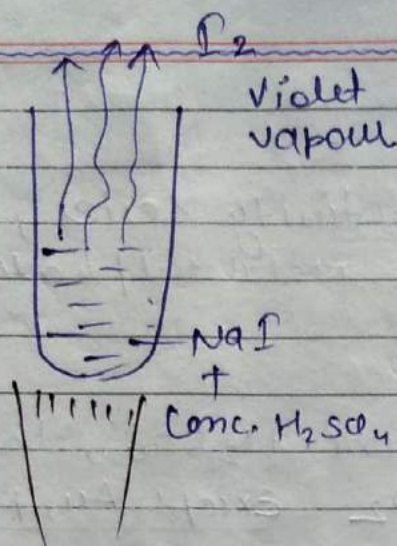 I2
Violet
vapour
NaI
+
Conc. H2SO4